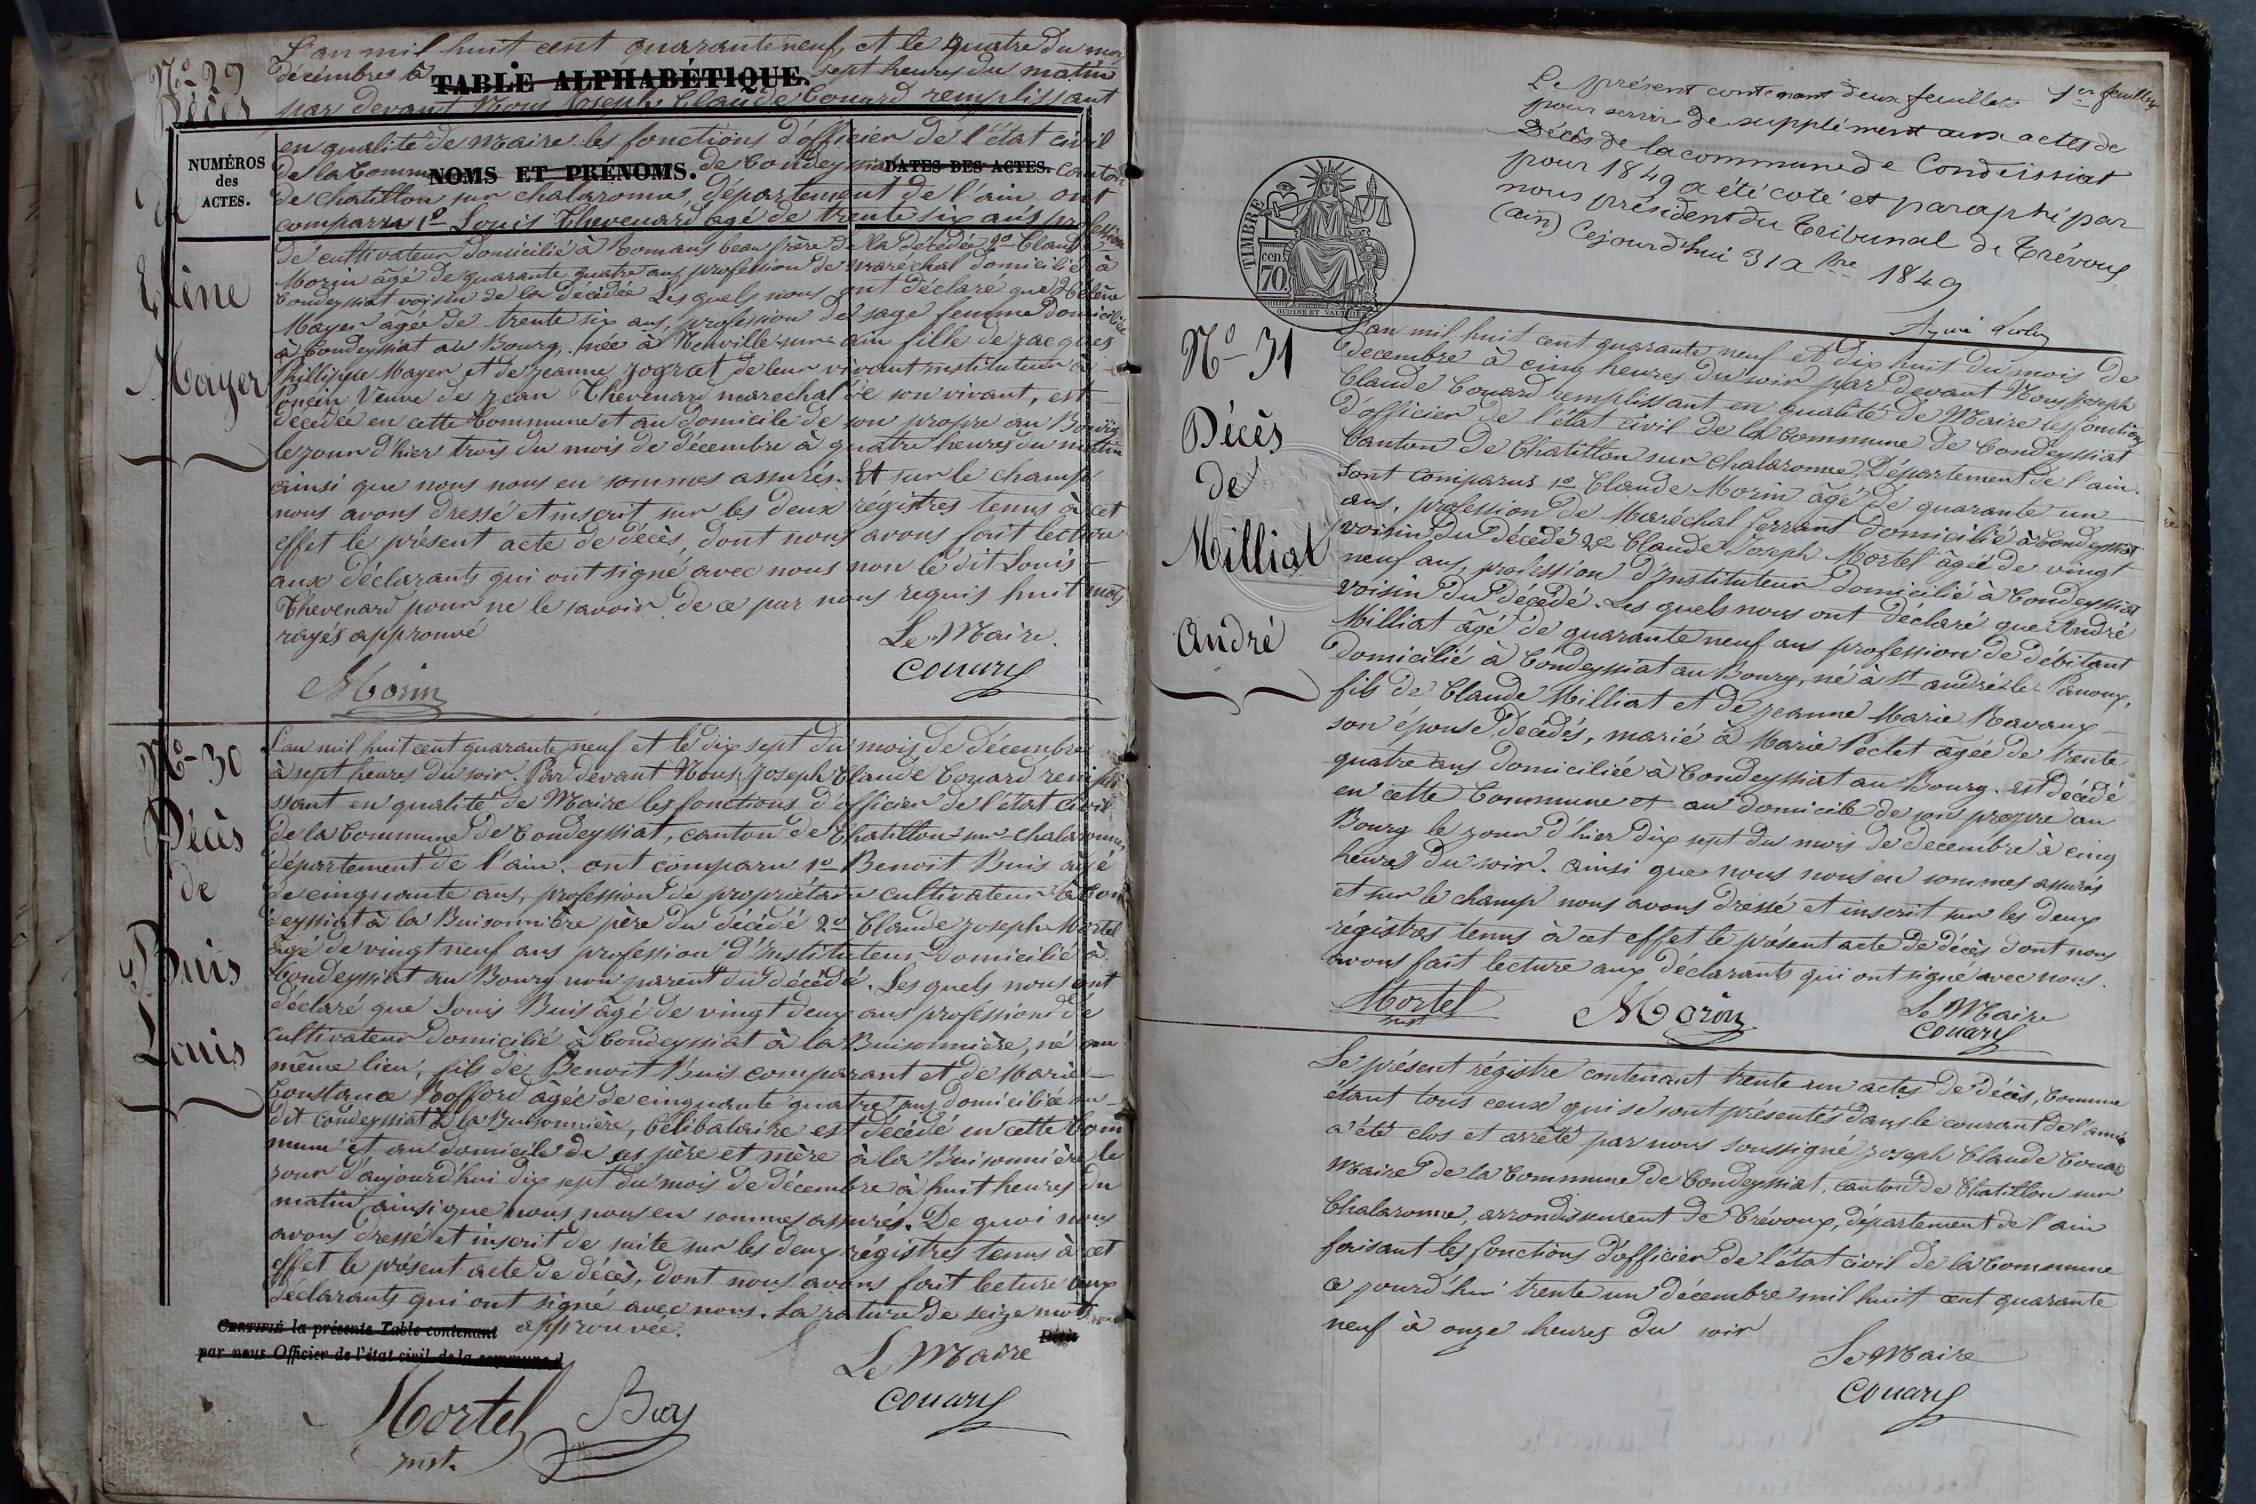 L'an mil huit cent quarante neuf, et le quatre du mois
N° 29
décembres à sept heures du matin
TABLE ALPHABÉTIQUE.
Décès
par devant Nous Joseph Claude Couard remplissant
en qualité de Maire les fonctions d'officier de l'état civil
NUMÉROS
des
ACTES.
NOMS ET PRÉNOMS.
DATES DES ACTES.
de la Commune de Condeyssiat canton
de chatillon sur chalaronne, département de l'ain, ont
comparu 1° Louis Thevenard agé de trente six ans profession
de cultivateur domicilié à Romans beau frère de la décédée 2° Claude
Morin âgé de quarante quatre ans profession de maréchal domicilié à
Condeyssiat voisin de la décédée Les quels nous ont déclaré que Hélène
Mayer âgée de trente six ans, profession de sage femme domiciliée
à Condeyssiat au Bourg, née à Neuville sur ain fille de jacques
Phillippe Mayer et de jeanne jograt de leur vivant instituteur à
Poncin Veuve de jean Thevenard marechal de son vivant, est
décédée en cette Commune et au domicile de son propre au Bourg
le jour d'hier trois du mois de décembre à quatre heures du matin
ainsi que nous nous en sommes assurés. Et sur le champ
nous avons dressé et inscrit sur les deux régistres tenus à cet
effet le présent acte de décès, dont nous avons fait lecture
aux déclarants qui ont signé avec nous non le dit Louis
Thevenard pour ne le savoir de ce par nous requis huit mots
rayés approuvé
de
Mayer
Le Maire
Couard
Morin
N° 30
Décès
de
Buis
Louis
L'an mil huit cent quarante neuf et le dix sept du mois de décembre
à sept heures du soir. Par devant Nous Joseph Claude Couard rempli
ssant en qualité de Maire les fonctions d'officier de l'état civil
de la Commune de Condeyssiat, canton de Chatillon-sur-chalaronne,
département de l'ain. ont comparu 1° Benoit Buis agé
de cinquante ans, profession de propriétaire cultivateur à Con
deyssiat à la Buisonnière père du décédé 2° Claude joseph Mortel
âgé de vingt neuf ans profession d'Instituteur domicilié à
Condeyssiat au Bourg non parent du décédé. Les quels nous ont
déclaré que Louis Buis âgé de vingt deux ans profession de
cultivateur domicilié à Condeyssiat à la Buisonnière, né au
même lieu, fils de Benoit Buis comparant et de Marie
Constance Bofford âgée de cinquante quatre ans domiciliée au
dit Condeyssiat à la Buisonnière, Célibataire est décédé en cette Com
mune et au domicile de ses père et mère à la Buisonnière le
jour d'aujourd'hui dix sept du mois de décembre à huit heures du
matin ainsi que nous nous en sommes assurés. De quoi nous
avons dressé et inscrit de suite sur les deux régistres tenus à cet
effet le présent acte de décès, dont nous avons fait lecture aux
déclarants qui ont signé avec nous. La rature de seize mots
approuvée.
CERTIFIÉ la présente Table contenant
par nous Officier de l'état civil de la commune d
Le Maire
Couard
Mortel
inst.
Buy
Le présent contenant deux feuillets 1er feuillet
pour servir de supplément aux actes de
Décès de la commune de Condeissiat
pour 1849 a été coté et paraphé par
nous président du Tribunal de Trévoux
(ain) Cejourd'hui 31 Xbre 1849
TIMBRE
cen.
70.
N° 31
Décès
de
Milliat
André
L'an mil huit cent quarante neuf et dix huit du mois de
decembre à cinq heures du soir par devant Nous Joseph
Claude Couard remplissant en qualité de Maire les fonctions
d'officier de l'état civil de la Commune de Condeyssiat
Canton de Chatillon sur chalaronne, Département de l'ain.
sont comparus 1° Claude Morin âgé de quarante un
ans, profession de Maréchal ferrant domicilié à Condeyssiat
voisin du décédé 2° Claude Joseph Mortel âgée de vingt
neuf ans, profession d'Instituteur domicilié à Condeyssiat
voisin du décédé. Les quels nous ont déclaré que André
Milliat âgé de quarante neuf ans profession de débitant
domicilié à Condeyssiat au Bourg, né à St andré-le-Panoux,
fils de Claude Milliat et de jeanne Marie Ravaux
son épouse, décedés, marié à Marie Peclet âgée de trente
quatre ans domiciliée à Condeyssiat au Bourg. est décédé
en cette Commune et au domicile de son propre au
Bourg le jour d'hier dix sept du mois de decembre à cinq
heures du soir. ainsi que nous nous en sommes assurés
et sur le champ nous avons dressé et inscrit sur les deux
régistres tenus à cet effet le présent acte de décès dont nous
avons fait lecture aux déclarants qui ont signé avec nous.
Mortel
inst
Morin
Le Maire
Couard
Le présent régistre contenant trente un actes de décès, Comme
étant tous ceux qui se sont présentés dans le courant de l'année
a été clos et arrêté par nous soussigné joseph Claude Couard
Maire de la Commune de Condeyssiat, canton de Chatillon sur
Chalaronne, arrondissement de Trévoux, département de l'ain
faisant les fonctions d'officier de l'état civil de la Commune
ce jourd'hui trente un décembre mil huit cent quarante
neuf à onze heures du soir
Le Maire
Couard